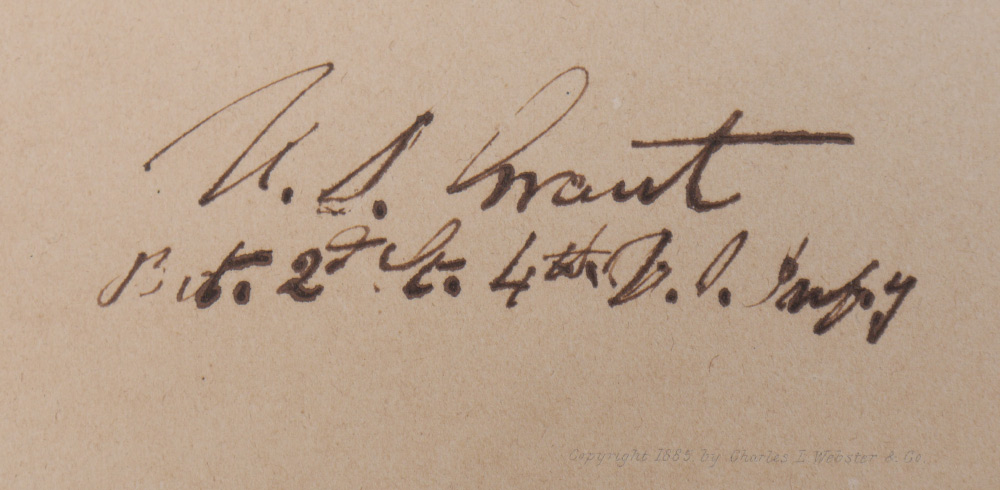 U. S. Grant
Bvt. 2d Lt. 4th U. S. Infy
Copyright 1885 by Charles L Webster & Co.